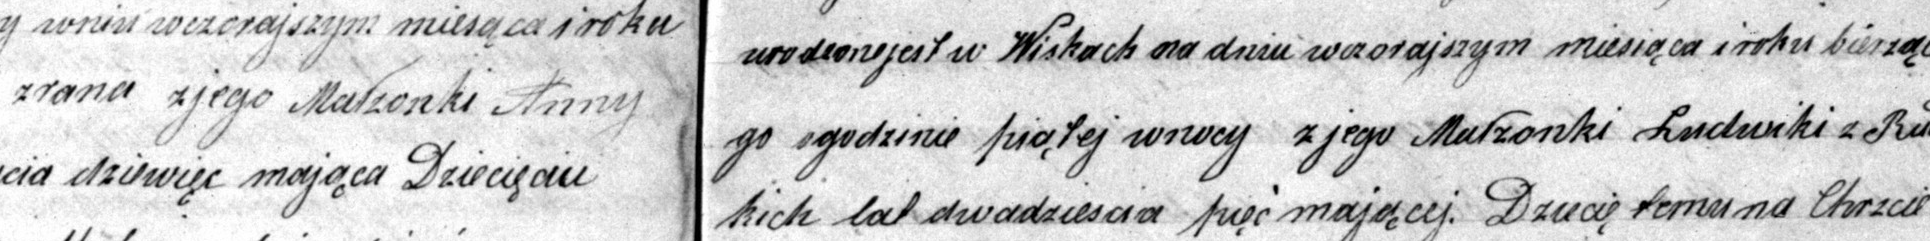 y wniu wczorajszym miesąca i roku
zrana zjego Małzonki Anny
cia dziewięc mająca Dziecięciu
urodzone jest w Wiskach na dniu wczorajszym miesiąca i roku bierzą
go ogodzinie piątej wnocy zjego Małzonki Ludwiki z Ru
kich lat dwadziescia pięć mającej. Dziecię temu na Chrzcie